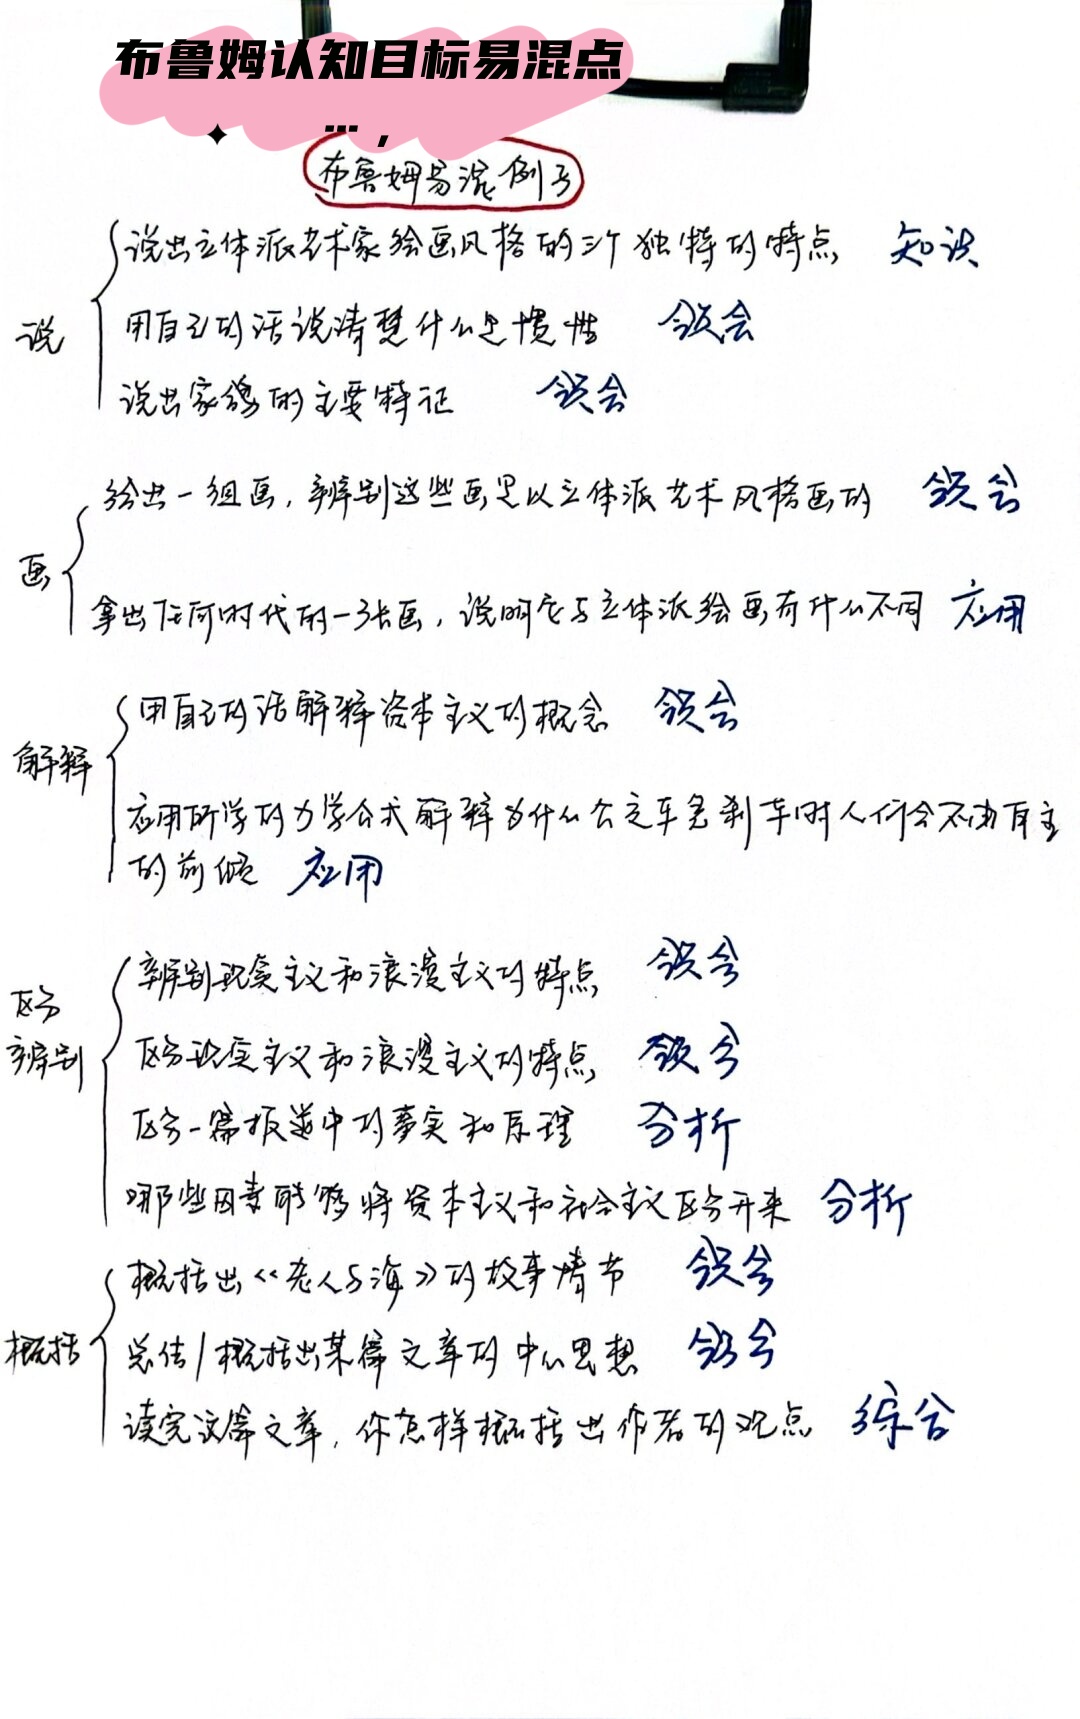 布鲁姆认知目标易混点
… ，
布鲁姆易混例子
说出立体派艺术家绘画风格的三个独特的特点 知识
说
用自己的话说清楚什么是惯性 领会
说出家鸽的主要特征 领会
给出一组画，辨别这些画是以立体派艺术风格画的 领会
画
拿出任何时代的一张画，说明它与立体派绘画有什么不同 应用
用自己的话解释资本主义的概念 领会
解释
应用所学的力学公式解释为什么公交车急刹车时人们会不由自主
的前倾 应用
辨别现实主义和浪漫主义的特点 领会
区分
辨别
区分现实主义和浪漫主义的特点 领会
区分一篇报道中的事实和原理 分析
哪些因素能够将资本主义和社会主义区分开来 分析
概括出《老人与海》的故事情节 领会
概括
总结/概括出某篇文章的中心思想 领会
读完这篇文章，你怎样概括出作者的观点 综合